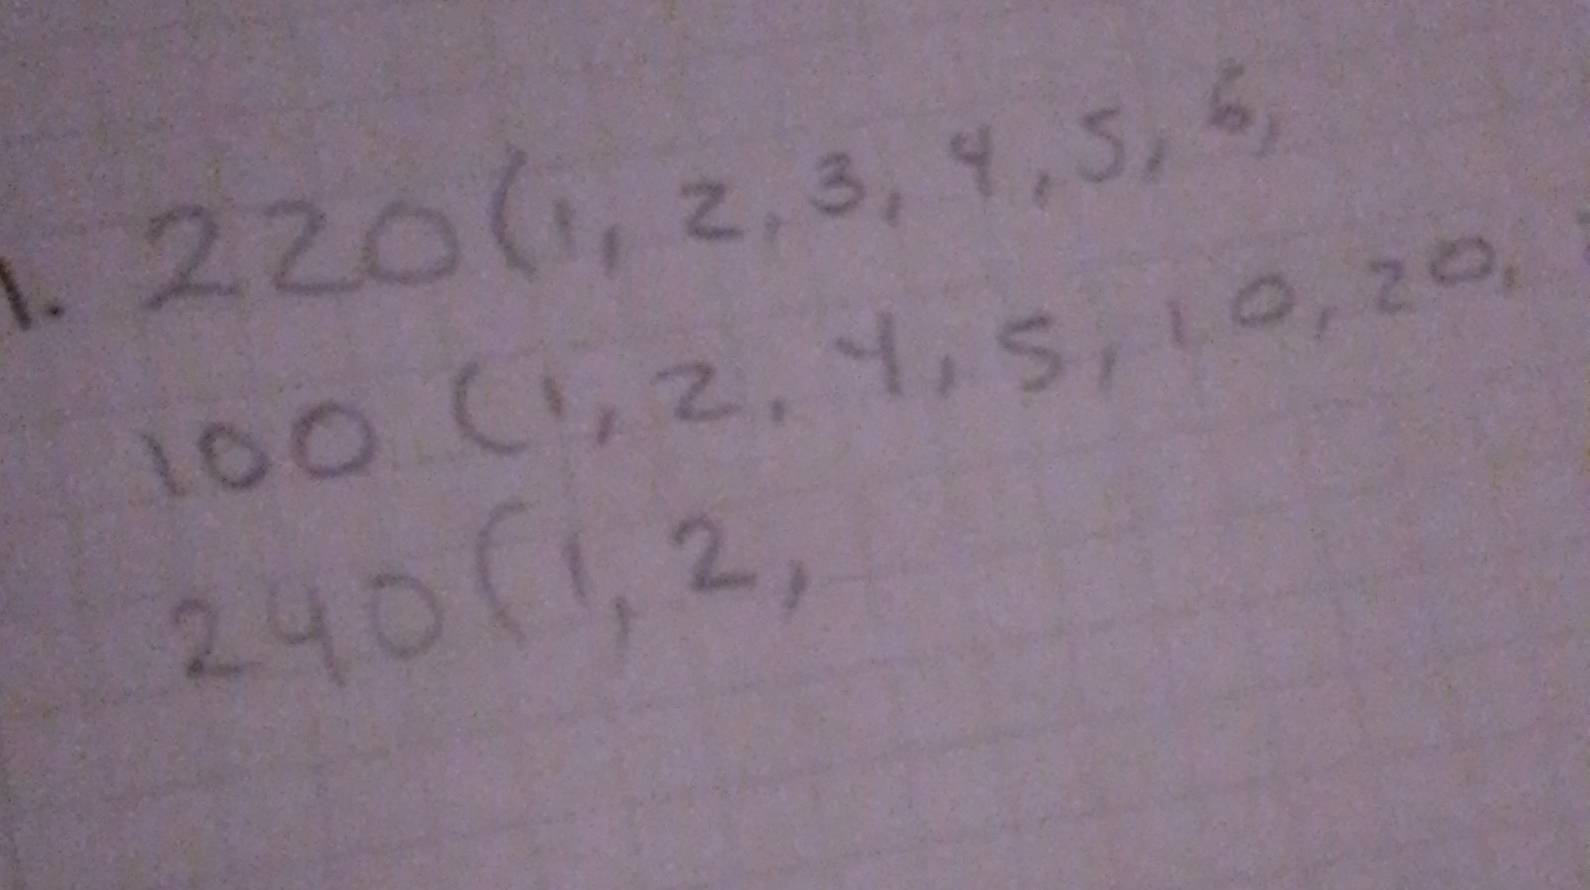 1. 220(1, 2, 3, 4, 5, 6,
100 (1, 2, 4, 5, 10, 20,
240(1, 2,